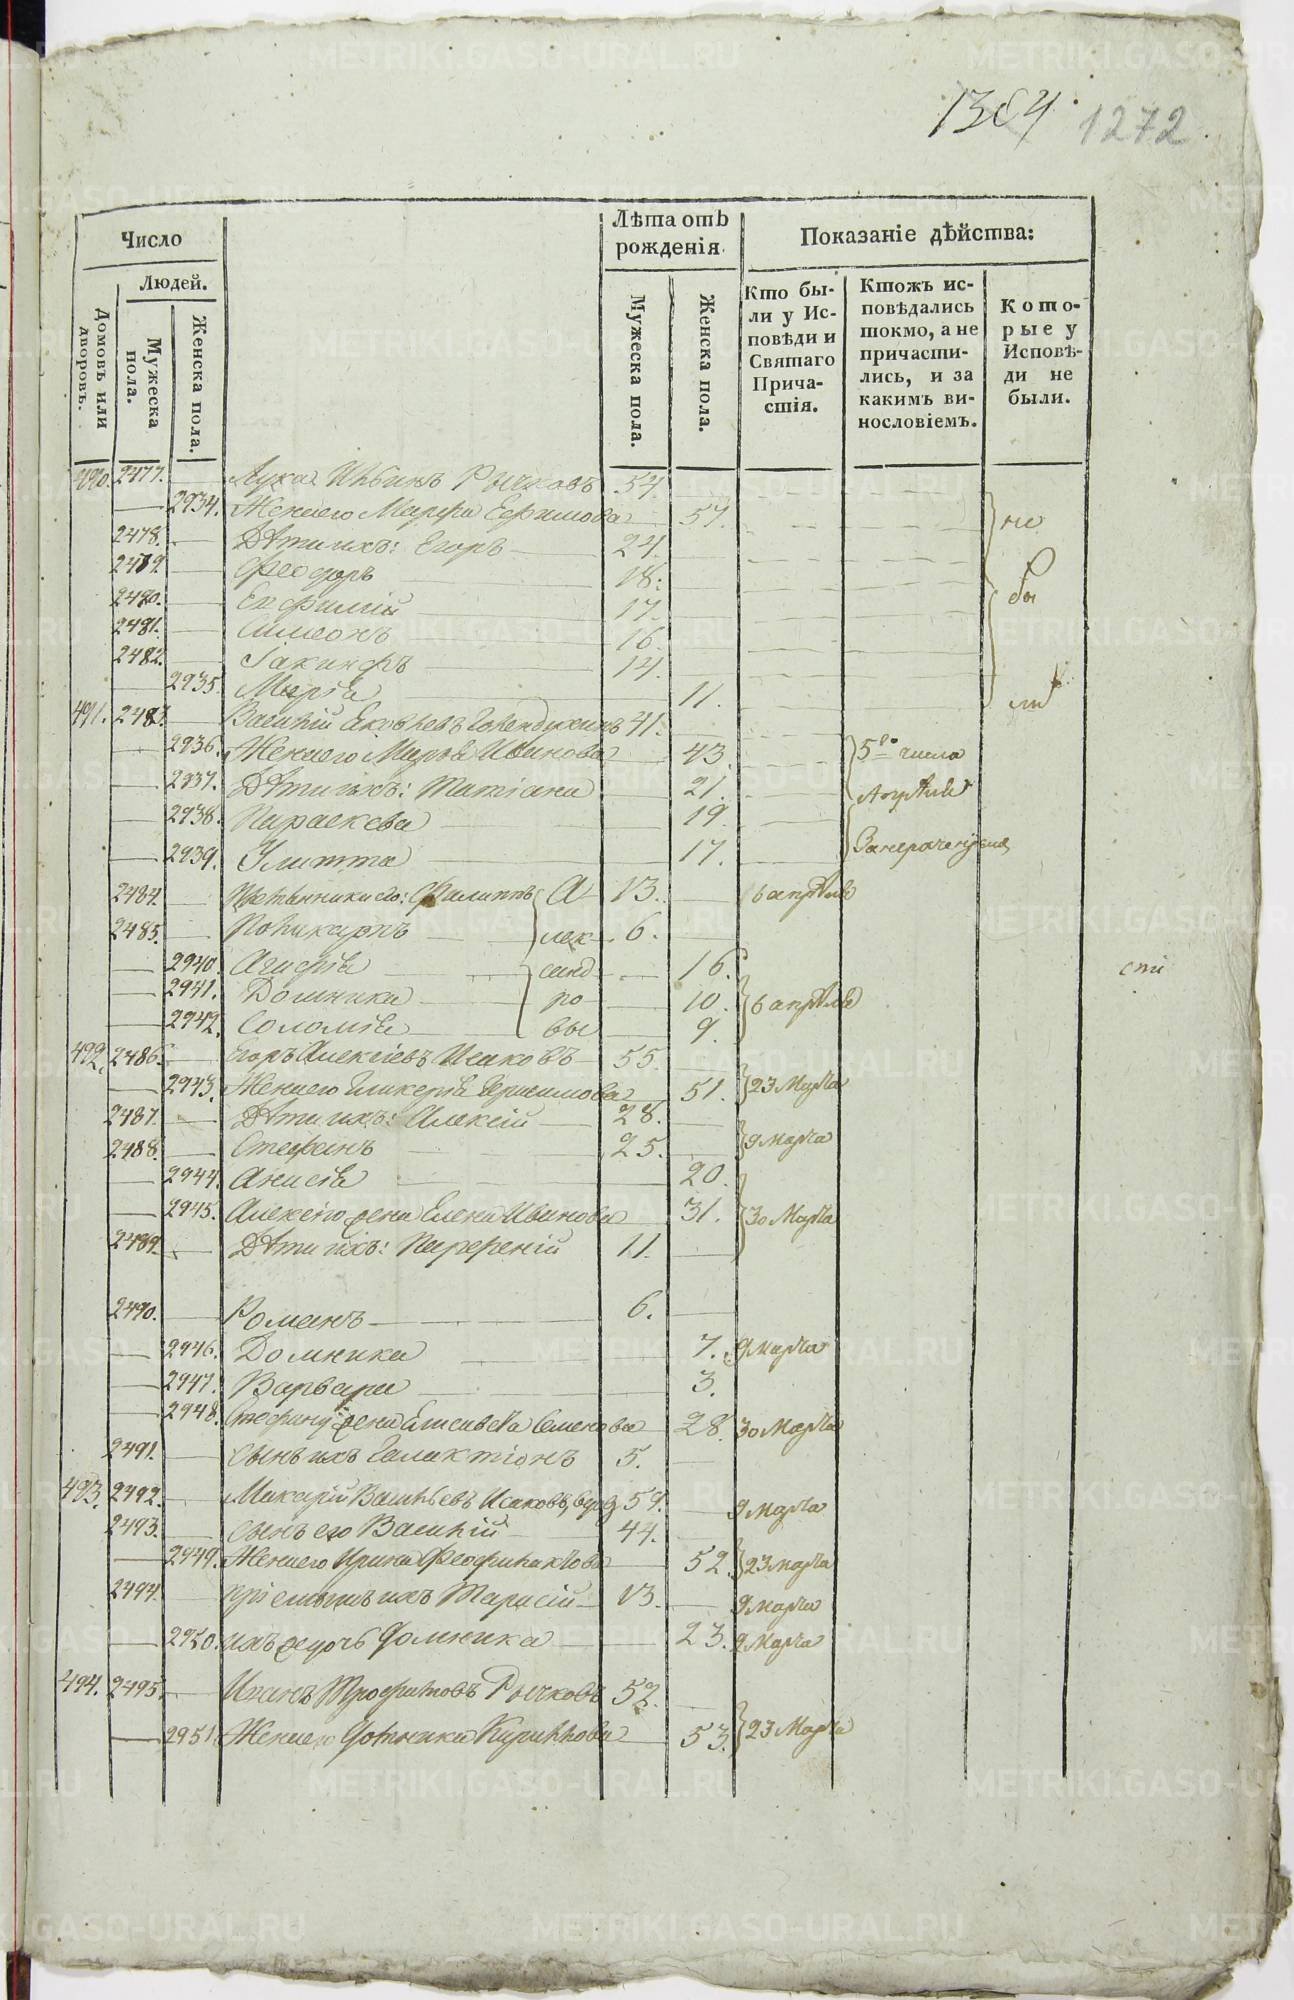 1364. 1272.
Число
Людей.
Домовъ или дворовъ.
Мужеска пола.
Женска пола.
Лѣта отъ рожденія.
Мужеска пола.
Женска пола.
Показаніе дѣйства:
Кто бы-
ли у Ис-
повѣди и
Святаго
Прича-
стія.
Ктожъ ис-
повѣдались
токмо, а не
причасти-
лись, и за
какимъ ви-
нословіемъ.
Кото-
рые у
Исповѣ-
ди не
были.
490. 2477. Лука Ильинъ Рычковъ 54.
2934. Жена его Марфа Ефимова 57. не
2478. Дѣти ихъ: Егоръ 24.
2479. Феодоръ 18.
2480. Евфимій 17. бы
2481. Симеонъ 16.
2482. Іакинфъ 14.
2935. Марѳа 11. ли
491. 2483. Василій Яковлевъ 41.
2936. Жена его Марѳа Иванова 43. 5го числа
2937. Дѣти ихъ: Татіана 21. Апрѣля
2938. Параскева 19.
2939. Улитта 17.
2484. Племянники его: Филиппъ А 13. 6 апрѣля
2485. Поликарпъ лек 6.
2940. Агафія санд 16.
2941. Домника ро 10. 6 апрѣля
2942. Соломія вы 9.
492. 2486. Егоръ Алексіевъ Исаковъ 55.
2943. Жена его Гликерія Герасимова 51. 23 Марта
2487. Дѣти ихъ: Алексій 28.
2488. Стефанъ 25. 9 марта
2944. Анисія 20.
2945. Алексія жена Елена Иванова 31. 30 Марта
2489. Дѣти ихъ: Парфеній 11.
2490. Романъ 6.
2946. Домника 7. 9 марта
2947. Варвара 3.
2948. Стефана жена Елисавета Семенова 28. 30 Марта
2491. сынъ ихъ Галактіонъ 5.
493. 2492. Макарій Васильевъ Исаковъ, вдовъ 59. 9 марта
2493. сынъ его Василій 44.
2949. Жена его Ирина Феофилактова 52. 23 марта
2494. пріемышъ ихъ Тарасій 13. 9 марта
2950. ихъ же дочь Домника 23. 9 Марта
494. 2495. Иванъ Трофимовъ Рычковъ 52.
2951. Жена его Кирилова 53. 23 Марта
METRIKI.GASO-URAL.RU